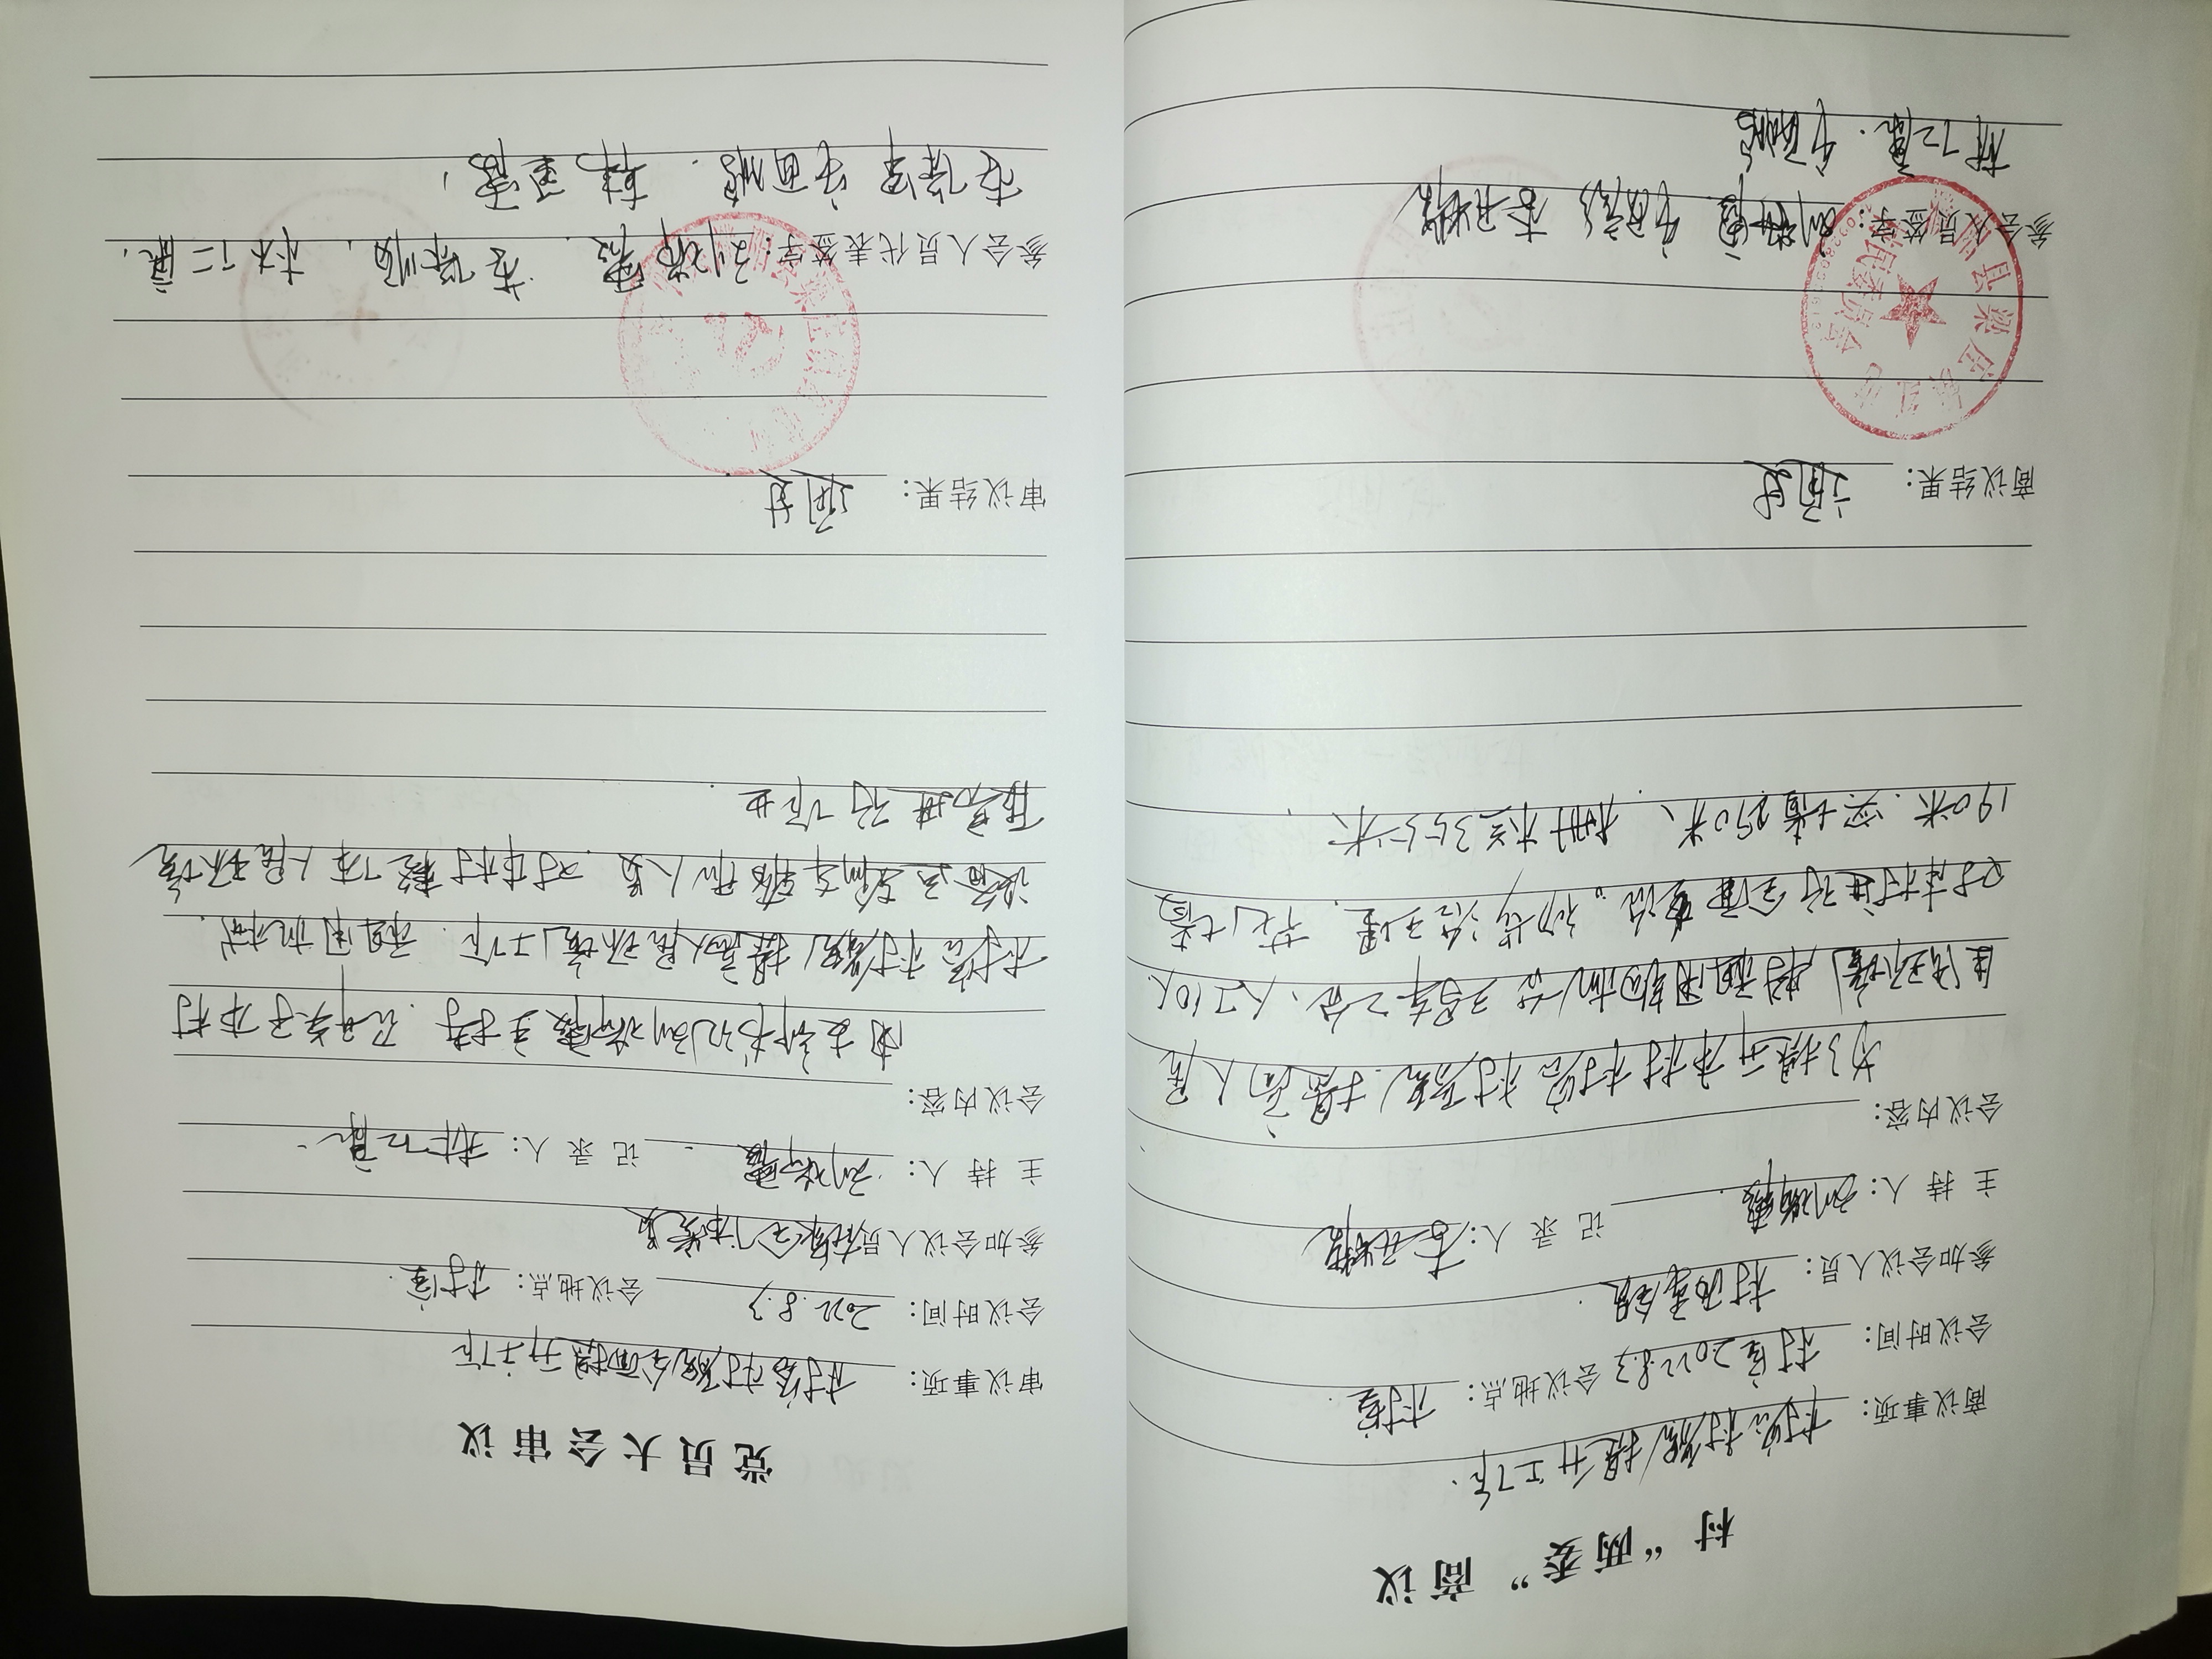 村“两委”商议
商议事项：村容村貌提升工作.
会议时间：村室2022.8.3 会议地点：村室.
参加会议人员：村两委全员.
主持人：刘瑞霞. 记录人：李开耀
会议内容：
为了提升本村村容村貌.提高人居
生活环境,特租用钩机一台 三马车2台、人工10人
对本村进行全面整治。初步治理、花墙
190米.实墙290米、栅栏355米、
商议结果：通过
县梁庄镇红
村民委员会
参会人员签字：刘瑞霞. 李开耀
林仁康.
党员大会审议
审议事项：村容村貌全面提升工作
会议时间：2022.8.3 会议地点：村室.
参加会议人员在家全体党员
主持人：刘瑞霞. 记录人：林仁康
会议内容：
由支部书记刘瑞霞主持.召开关于本村
村容村貌提高人居环境工作.租用机械.
设备运输车辆和人员.对本村整体人居环境
进行作业.
审议结果：通过.
参会人员代表签字：刘瑞霞. 李保顺. 林仁康.
李保军